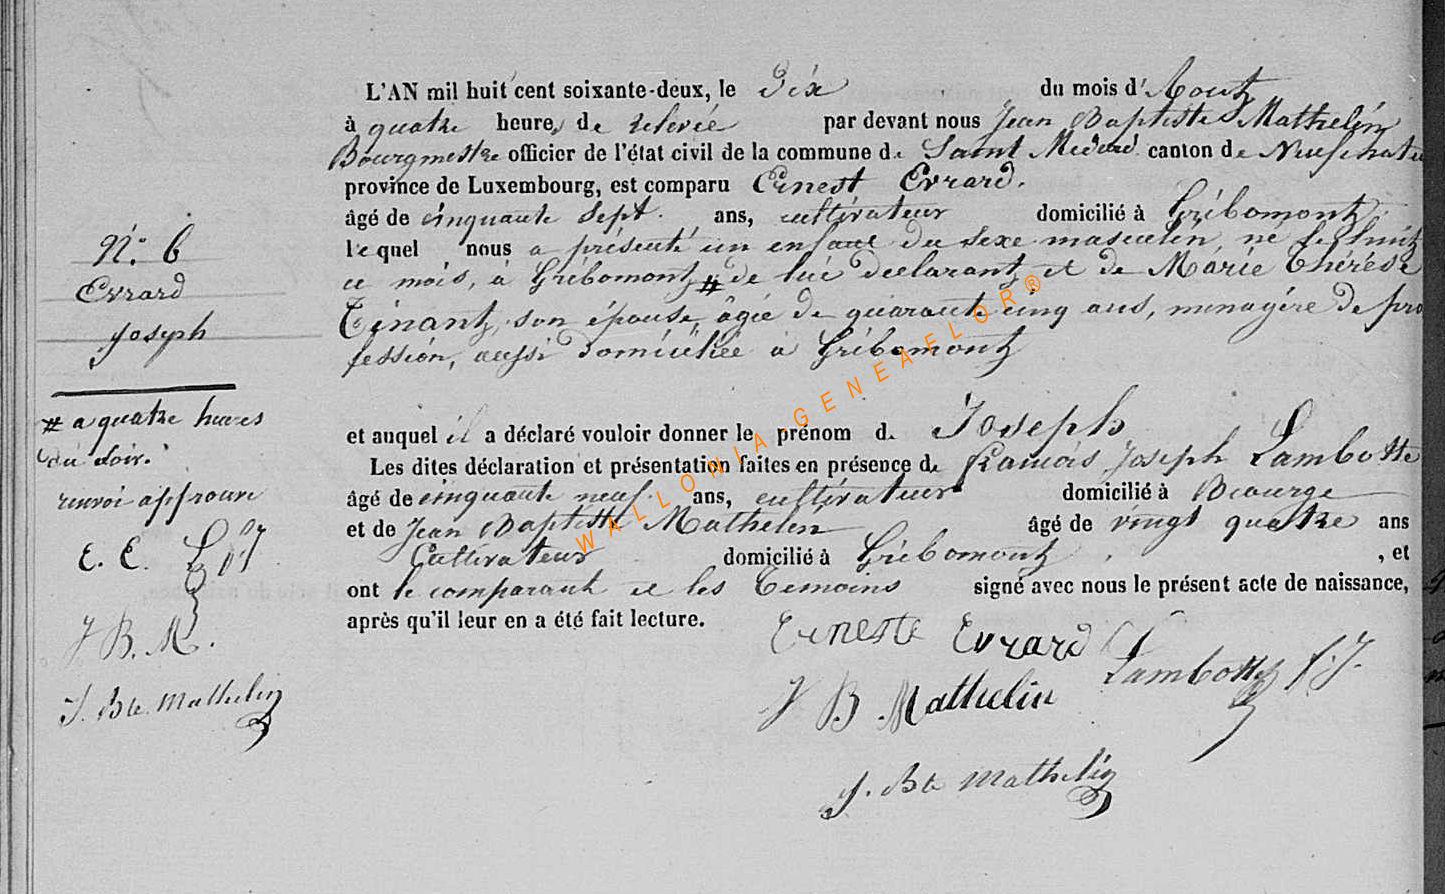 L'AN mil huit cent soixante-deux, le Dix du mois d'Aout
à quatre heures de relevée par devant nous Jean Baptiste Mathelin
Bourgmestre officier de l'état civil de la commune de Saint Médard canton de Neufchatea
province de Luxembourg, est comparu Ernest Evrard.
âgé de cinquante sept ans, cultivateur domicilié à Gribomont,
lequel nous a présenté un enfant du sexe masculin, né le huit
ce mois, à Gribomont, # de lui déclarant et de Marie Thérèse
Tinant, son épouse, âgée de quarante cinq ans, menagère de pro
fession, aussi domiciliée à Gribomont
et auquel il a déclaré vouloir donner le prénom de Joseph
Les dites déclaration et présentation faites en présence de francois Joseph Lambotte
âgé de cinquante neuf ans, cultivateur domicilié à
et de Jean Baptiste Mathelin âgé de vingt quatre ans
Cultivateur domicilié à Gribomont, et
ont le comparant et les temoins signé avec nous le présent acte de naissance,
après qu'il leur en a été fait lecture.
Erneste Evrard Lambotte f. J.
J B Mathelin
J. Bte Mathelin
N° 6
Evrard
Joseph
# a quatre heures
du soir.
renvoi approuvé
E. E. L f. J
J B. M.
J. Bte Mathelin
WALLONIA GENEAFLOR®